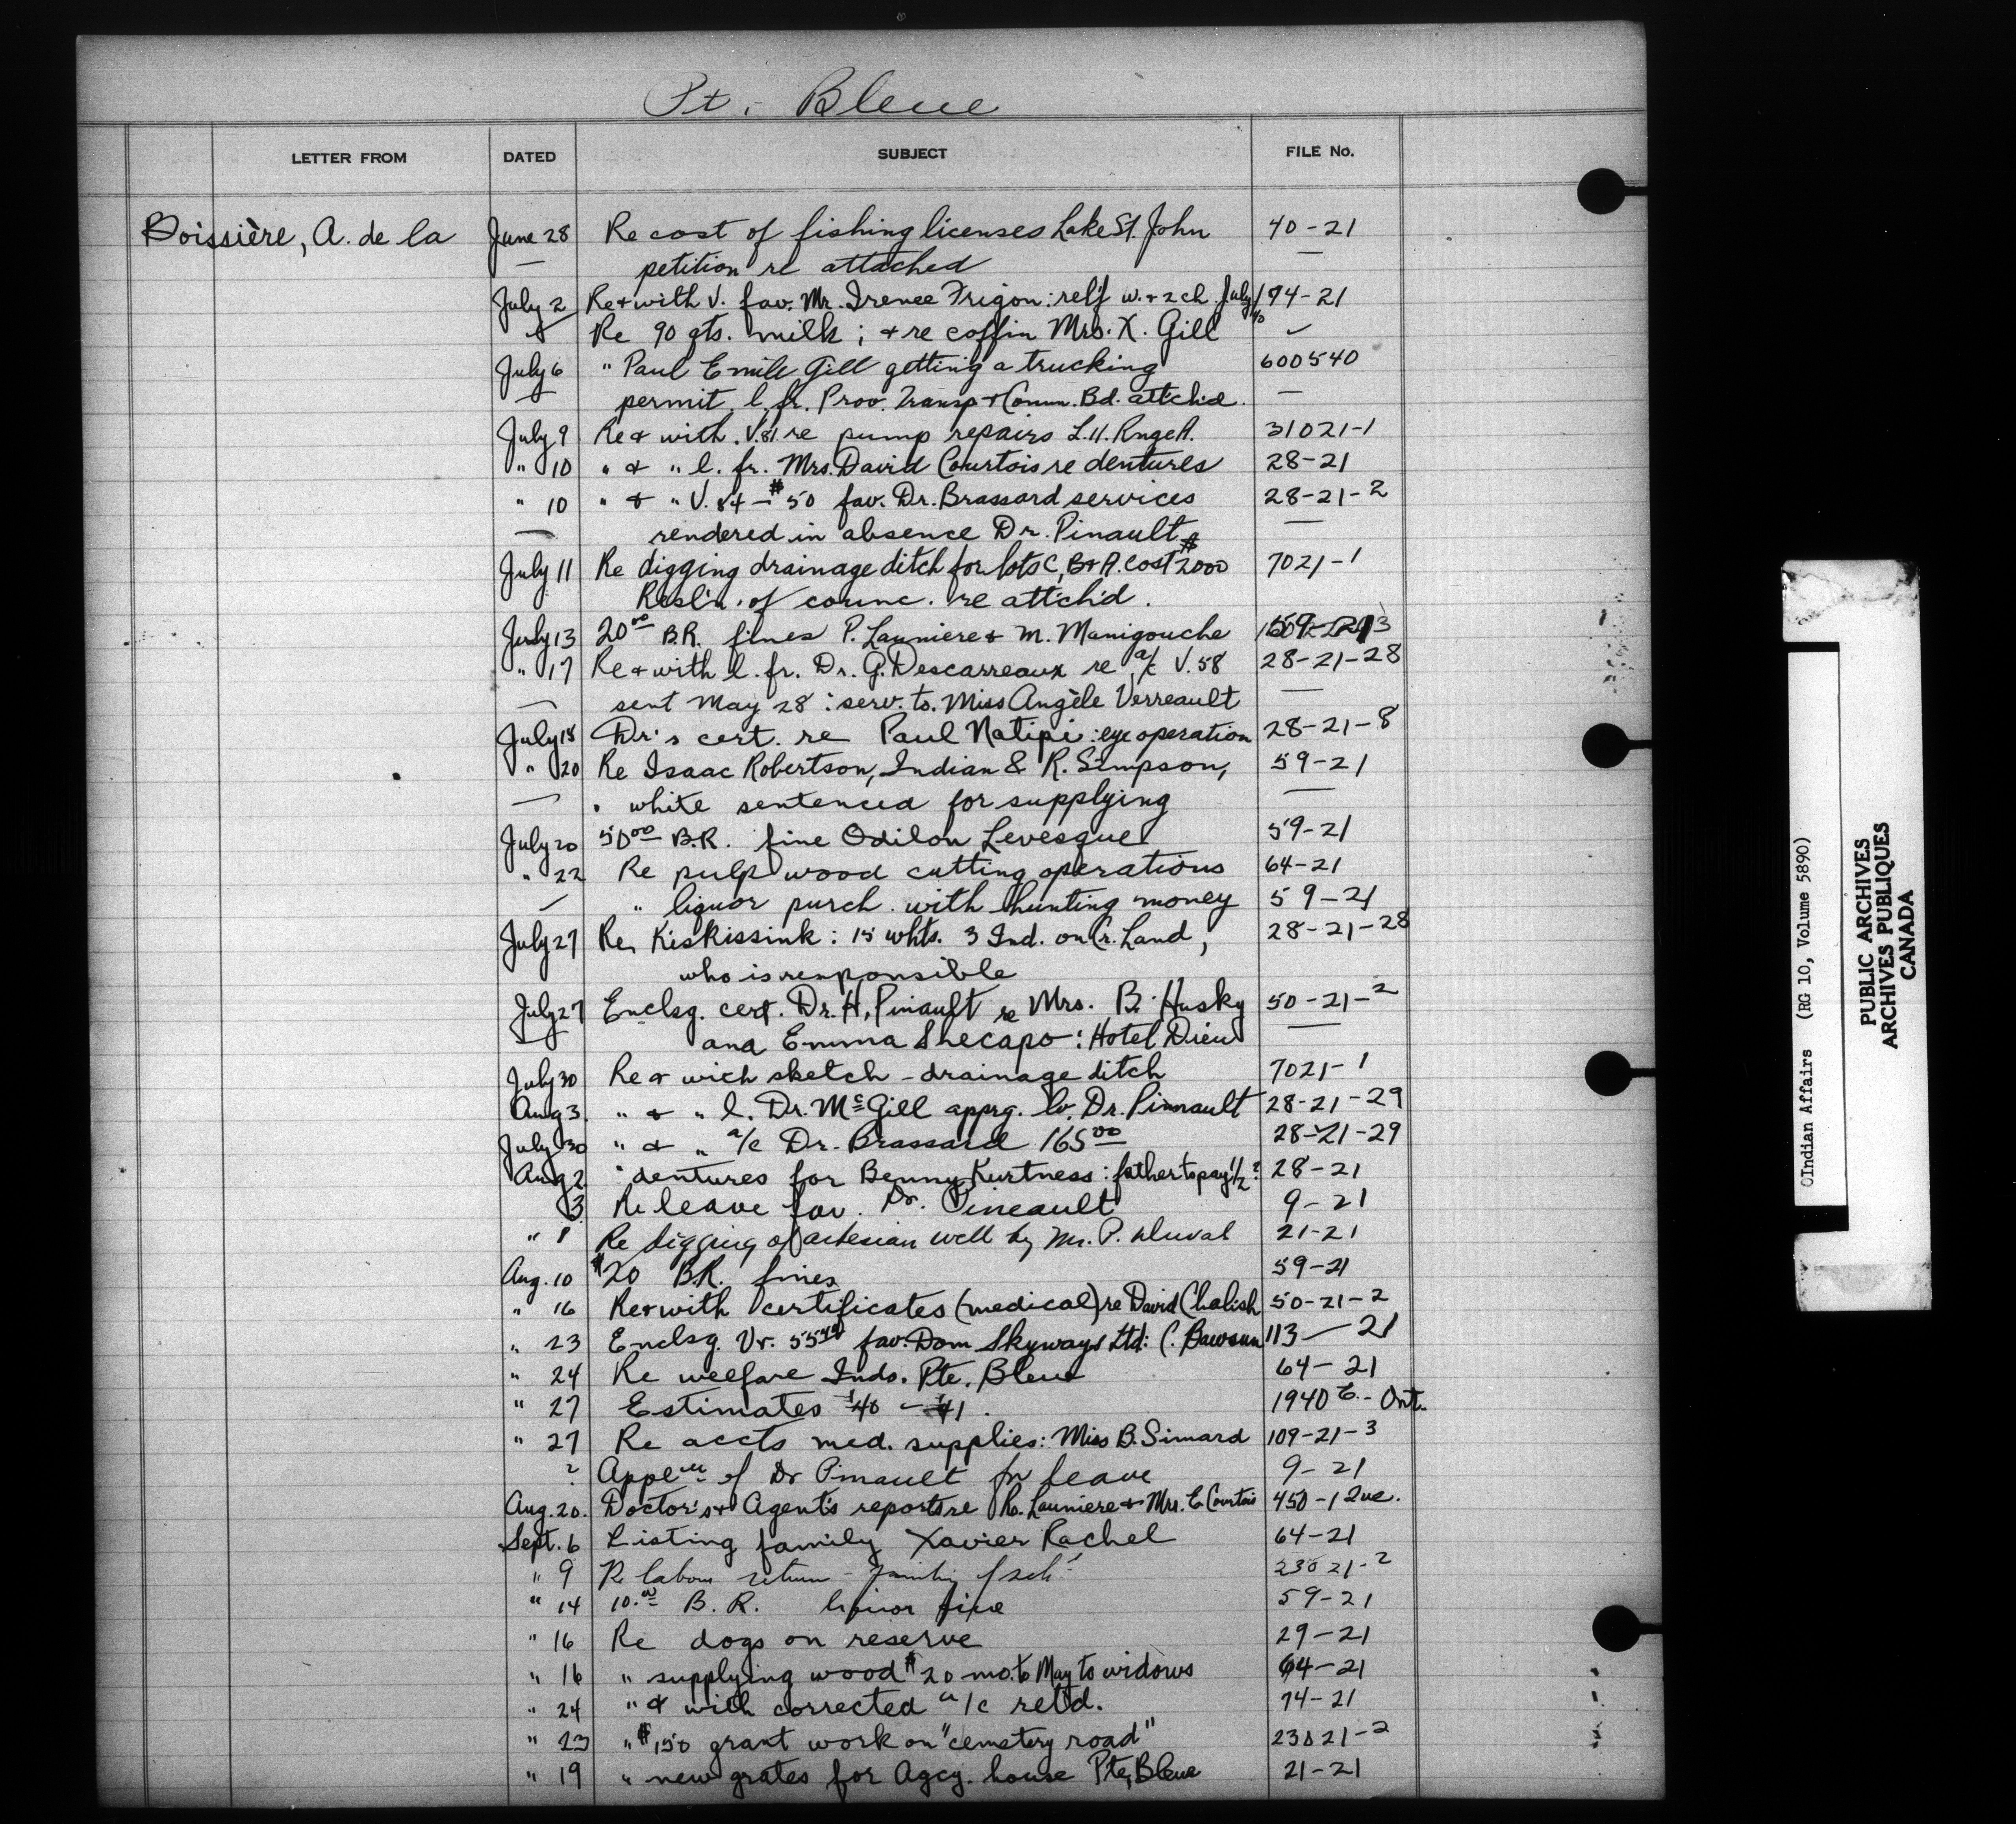 Pt. Bleue
LETTER FROM DATED SUBJECT FILE No.
Boissière, A. de la June 28 Re cost of fishing licenses Lake St. John 40-21
— petition re attached —
July 2 Re & with V. fav. Mr. Irenee Frigon: relf w. & 2 ch. July 74-21
Re 90 qts. milk; & re coffin Mrs. X. Gill ✓
July 6 " Paul Emile Gill getting a trucking 600540
— permit, l. fr. Prov. Transp & Comm. Bd. attch'd. —
July 9 Re & with V. 81 re pump repairs L.H. 31021-1
" 10 " & " l. fr. Mrs. David Courtois re dentures 28-21
" 10 " & " V. 84 — $50 fav. Dr. Brassard services 28-21-2
— rendered in absence Dr. Pinault —
July 11 Re digging drainage ditch for lots C, B & A. cost $2000 7021-1
Resl'n. of counc. re attch'd.
July 13 20.00 B.R. fines P. Launiere & M. Manigouche 59-21
" 17 Re & with l. fr. Dr. G. Descarreaux re a/c V. 58 28-21-28
— sent May 28: serv. to. Miss Angèle Verreault —
July 18 Dr's cert. re Paul Natipi: eye operation 28-21-8
" 20 Re Isaac Robertson, Indian & R. Simpson, 59-21
— white sentenced for supplying —
July 20 50.00 B.R. fine Odilon Levesque 59-21
" 22 Re pulp wood cutting operations 64-21
— " liquor purch. with hunting money 59-21
July 27 Re, Kiskissink: 15 whts. 3 Ind. on Cr. Land, 28-21-28
who is responsible
July 27 Enclsg. cert. Dr. H. Pinault re Mrs. B. Husky 50-21-2
— and Emma Shecapo: Hotel Dieu —
July 30 Re & with sketch - drainage ditch 7021-1
Aug 3. " & " l. Dr. McGill apprg. lv. Dr. Pinnault 28-21-29
July 30 " & " a/c Dr. Brassard 165.00 28-21-29
Aug 2 " dentures for Benny Kurtness: father to pay 1/2? 28-21
3 Re leave fav. Dr. Pineault 9-21
" 8 Re digging of artesian well by Mr. P. Duval 21-21
Aug. 10 $20 B.R. fines 59-21
" 16 Re & with certificates (medical) re David Chalish 50-21-2
" 23 Enclsg. Vr. 55 fav. Dom Skyways Ltd: C. Bawsum 113-21
" 24 Re welfare Inds. Pte. Bleue 64-21
" 27 Estimates '40-'41. 1940 E.- Ont.
" 27 Re accts med. supplies: Miss B. Simard 109-21-3
? of Dr Pinault for leave 9-21
Aug. 20. Doctor's & Agent's reports re R. Launiere & Mrs. E. Courtois 450-1 Que.
Sept. 6 Listing family Xavier Rachel 64-21
" 9 Re labour return - 23021-2
" 14 10.00 B.R. liquor fine 59-21
" 16 Re dogs on reserve 29-21
" 16 " supplying wood $20 mo. to May to widows 64-21
" 24 " & with corrected a/c retd. 74-21
" 23 " $150 grant work on "cemetery road" 23021-2
" 19 " new grates for Agcy. house Pte, Bleue 21-21
©Indian Affairs (RG 10, Volume 5890)
PUBLIC ARCHIVES
ARCHIVES PUBLIQUES
CANADA